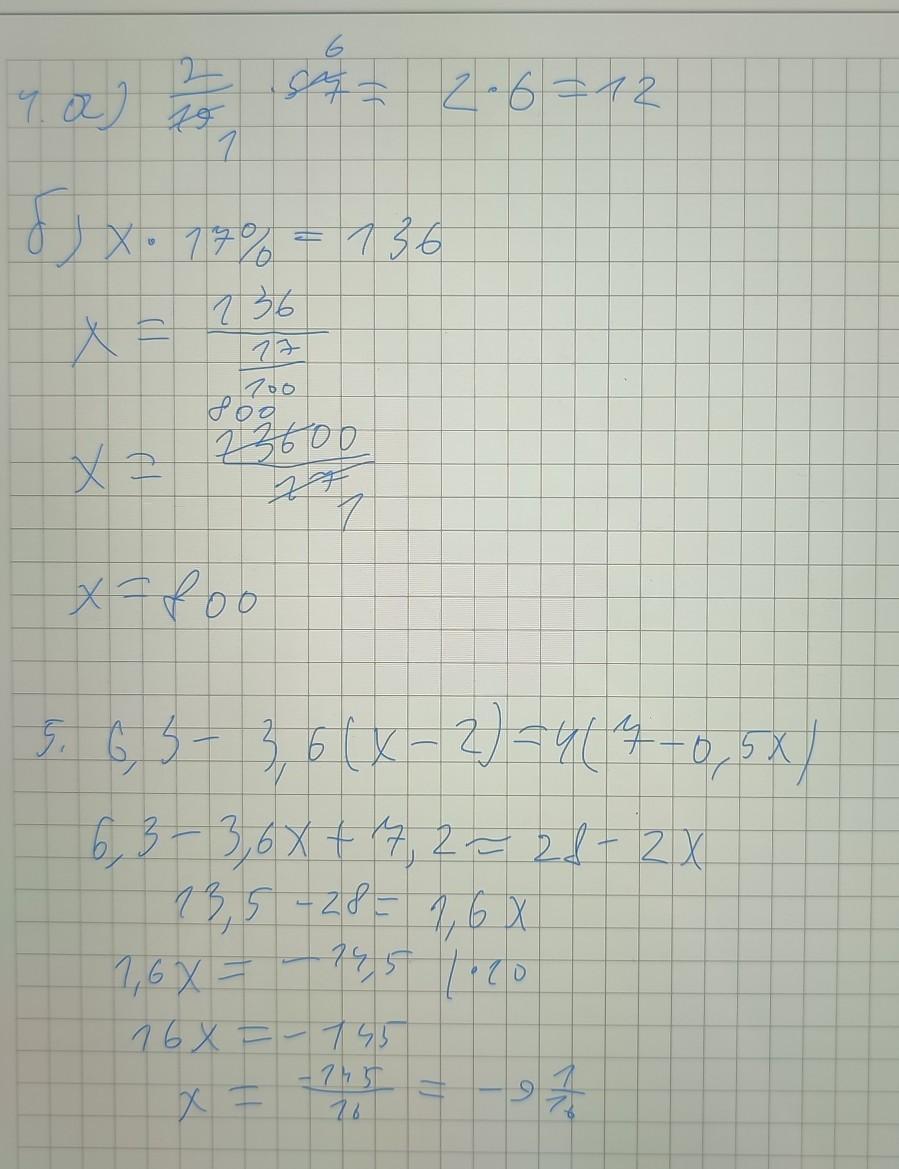 4. а) 2/19 · 57 = 2 · 6 = 12
6
1
б) x · 17% = 136
x = 136/(17/100)
800
x = 13600/17
1
x = 800
5. 6,3 - 3,6(x - 2) = 4(7 - 0,5x)
6,3 - 3,6x + 7,2 = 28 - 2x
13,5 - 28 = 1,6x
1,6x = -14,5 | · 10
16x = -145
x = -145/16 = -9 1/16